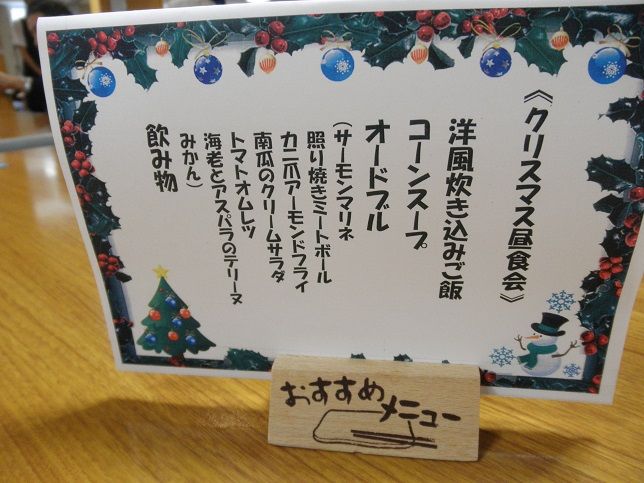 《クリスマス昼食会》
洋風炊き込みご飯
コーンスープ
オードブル
(サーモンマリネ
照り焼きミートボール
カニ爪アーモンドフライ
南瓜のクリームサラダ
トマトオムレツ
海老とアスパラのテリーヌ
みかん)
飲み物
おすすめ
メニュー